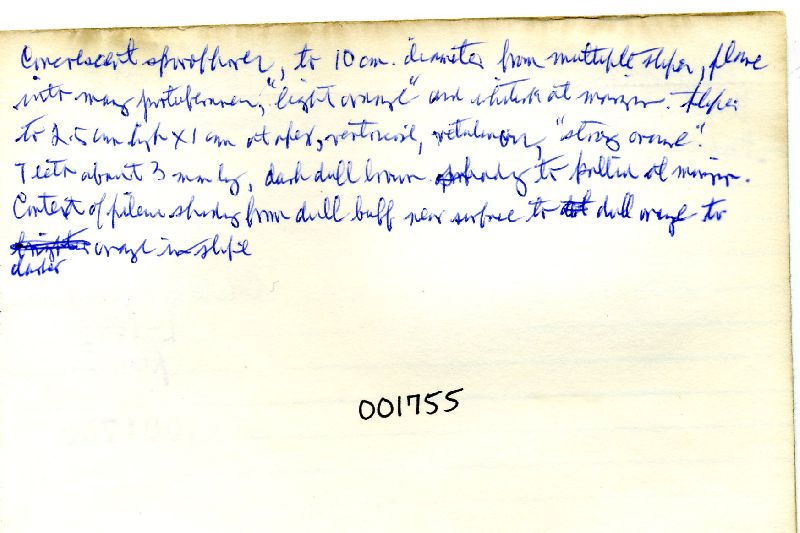 Concrescent sporophores, to 10 cm. diameter from multiple stipes, plane
into many protuberances, "light orange" and whitish at margin. Stipes
to 2.5 cm high x 1 cm at apex, "strong orange".
Teeth about 3 mm long, dark dull brown shading to pallid at margin.
Context of pileus shading from dull buff near surface to dull orange to
darker orange in stipe
001755